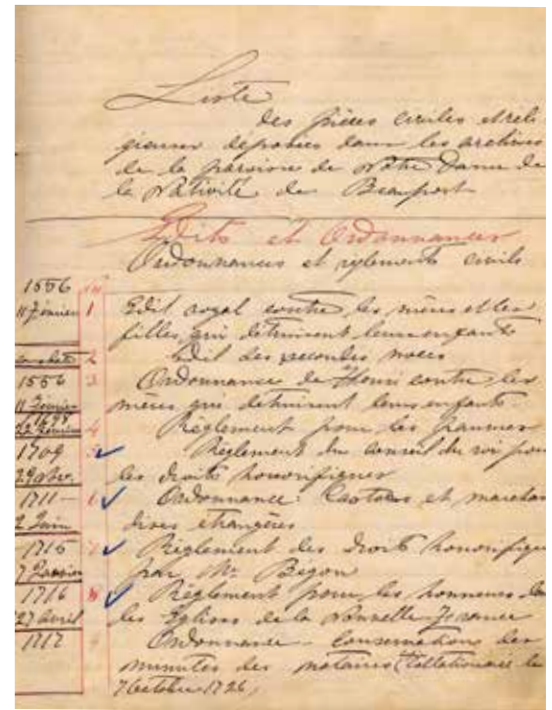 Liste
des pièces civiles et reli
gieuses déposées dans les archives
de la paroisse de Notre Dame de
la Nativité de Beauport
Edits et Ordonnances
Ordonnances et règlements civils
1556
11 Février 1 Edit royal contre les mères et les
filles qui détruisent leurs enfants
sans date 2 Edit des secondes noces
1556 3 Ordonnance de Henri contre les
11 Février mères qui détruisent leurs enfants
22 4 Règlement pour les
1709 Règlement du conseil du roi pour
les droits honorifiques
1711 - 6 Ordonnance: Castors et marchan
2 Juin dises étrangères
1715 7 Règlement des droits honorifiques
par Mr Begon
1716 8 Règlement pour les honneurs dans
27 avril les Eglises de la Nouvelle-France
1717 9 Ordonnance - Conservation des
minutes des notaires (Collationnée le
7 Octobre 1726,